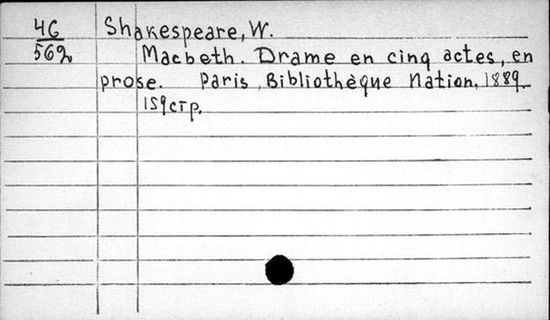 46
562
Shakespeare, W.
Macbeth. Drame en cinq actes, en
prose. Paris, Bibliothèque Nation, 1889.
159 стр.